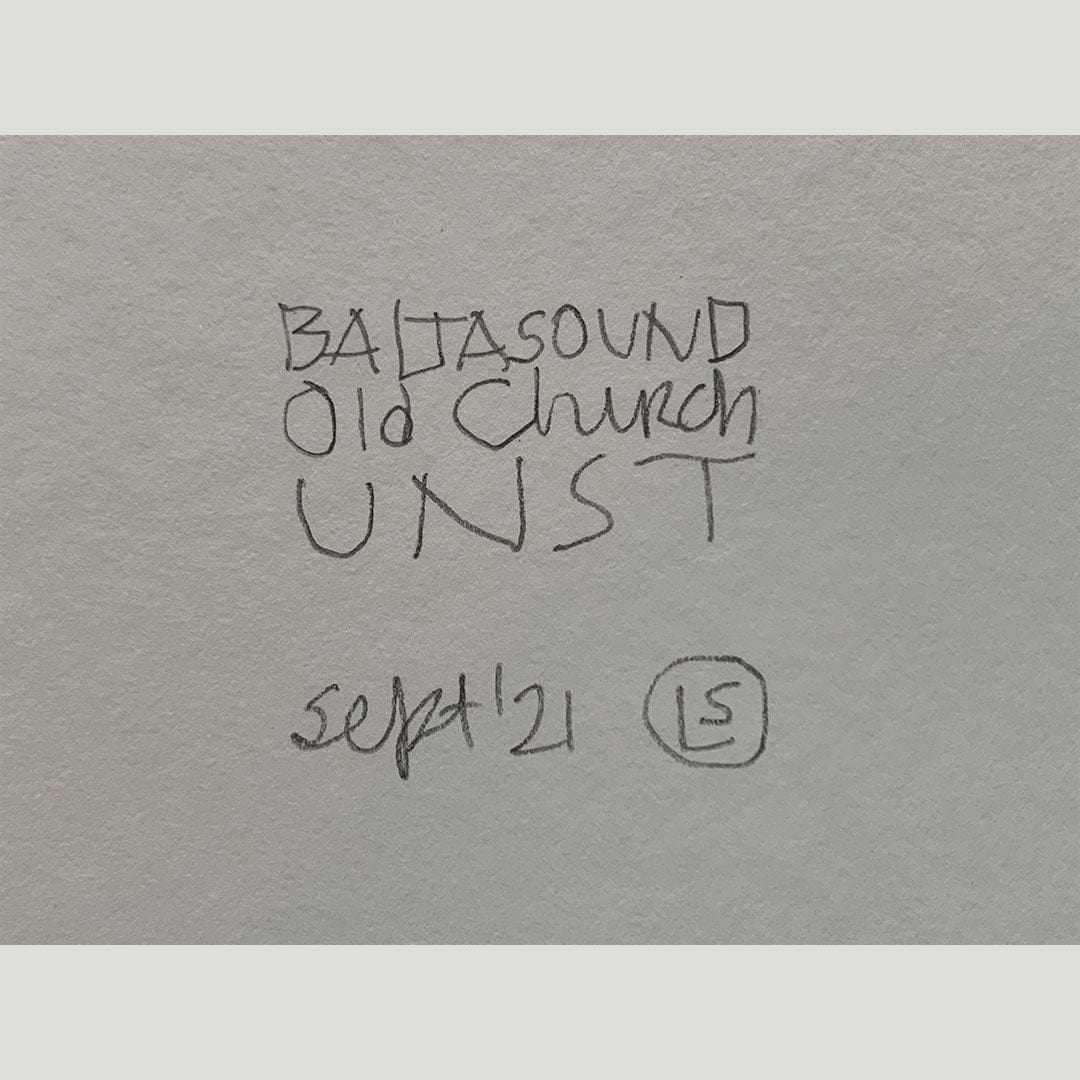 BALTASOUND
Old Church
UNST
sept '21 LS